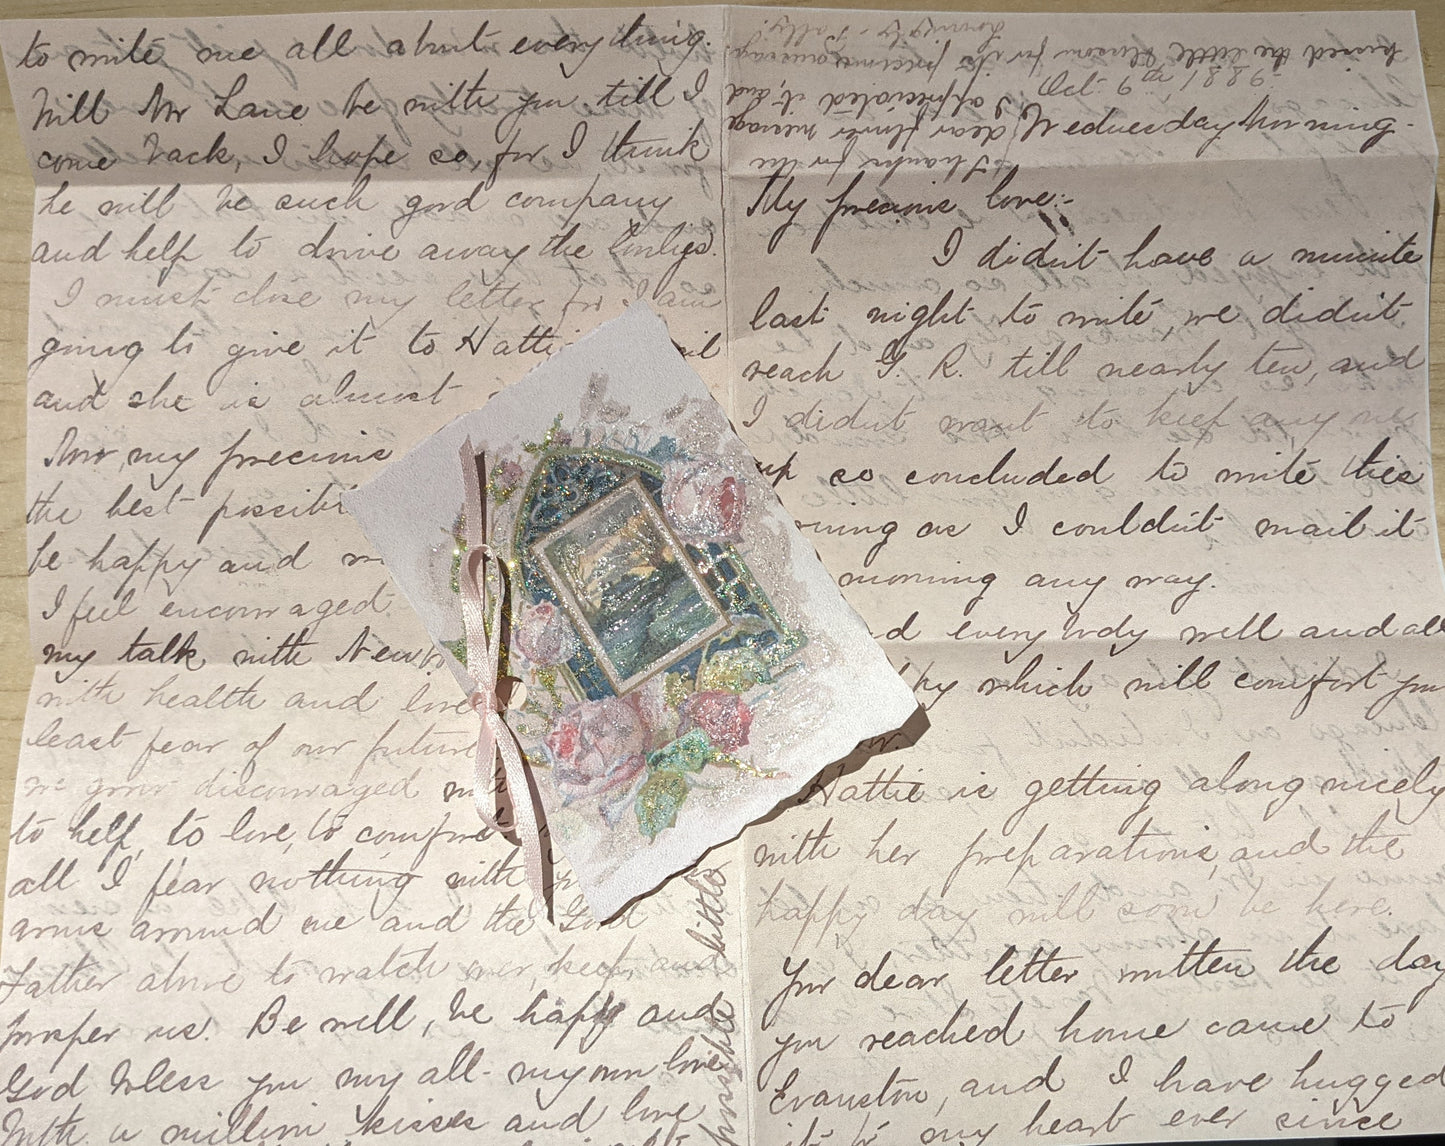 to write me all about everything.
Will Mr Lane be with you till I
come back, I hope so, for I think
he will be such good company
and help to drive away the
I must close my letter for I am
going to give it to Hattie
and she is almost
Now, my precious
the best possibl
be happy and
I feel encouraged
my talk with
with health and love
least fear of our future
we grow discouraged
to help, to love, to comfort
all I fear nothing with
arms around me and the Good
Father above to watch over, keep and
prosper us. Be well, be happy and
God bless you my all- my own love
With a million kisses and love
possible little
Thanks for the
dear flower message
I appreciated it, and
kissed the little blossom for its precious
Oct. 9th, 1889
Wednesday Morning.
My precious love:-
I didn't have a minute
last night to write, we didn't
reach G. R. till nearly ten, and
I didn't want to keep any
up so concluded to write this
ning as I couldn't mail it
morning any way.
d everybody well and all
py which will comfort you
Hattie is getting along nicely
with her preparations, and the
happy day will soon be here.
Your dear letter written the day
you reached home came to
Evanston, and I have hugged
it to my heart ever since